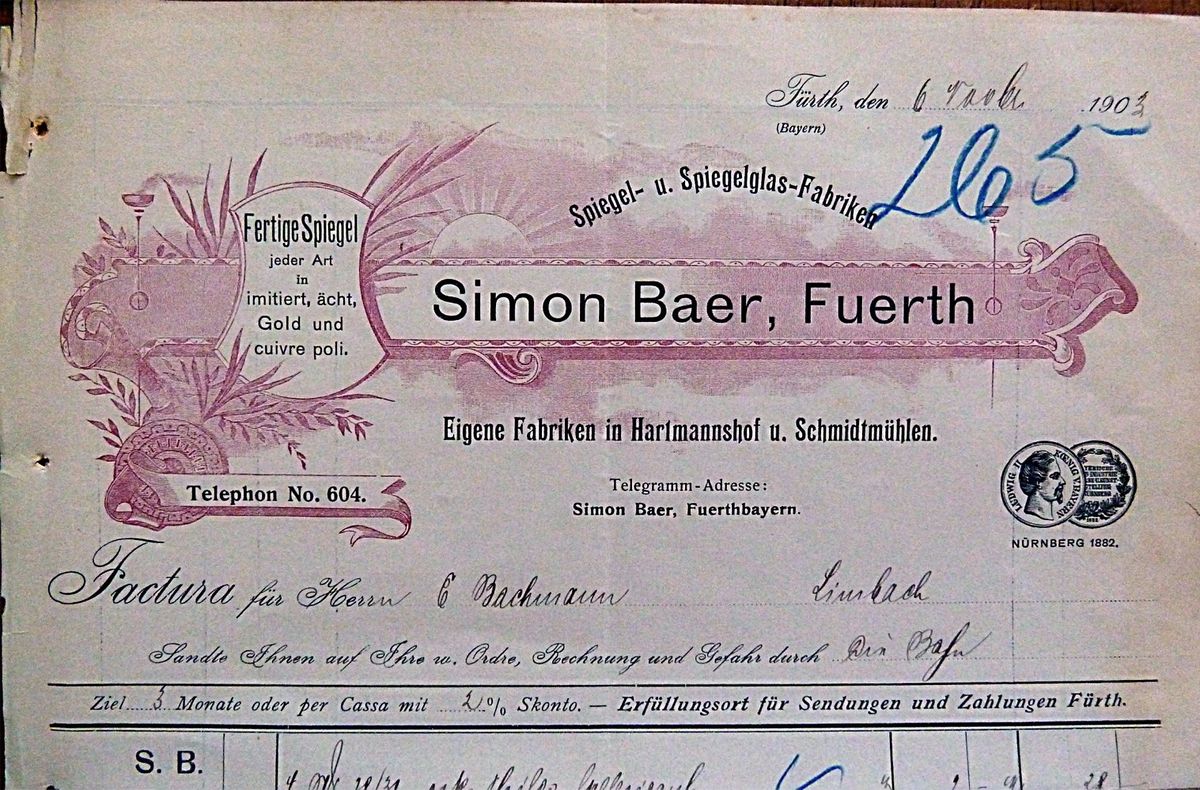 Fürth, den 6 Novbr 1903
(Bayern)
265
Spiegel- u. Spiegelglas-Fabriken
Fertige Spiegel
jeder Art
in
imitiert, ächt,
Gold und
cuivre poli.
Simon Baer, Fuerth
Eigene Fabriken in Hartmannshof u. Schmidtmühlen.
Telephon No. 604.
Telegramm-Adresse:
Simon Baer, Fuerthbayern.
LUDWIG II KOENIG V. BAYERN
NÜRNBERG 1882.
Factura für Herrn E Bachmann Limbach
Sandte Ihnen auf Ihre w. Ordre, Rechnung und Gefahr durch die Bahn
Ziel 3 Monate oder per Cassa mit 2% Skonto. — Erfüllungsort für Sendungen und Zahlungen Fürth.
S. B.